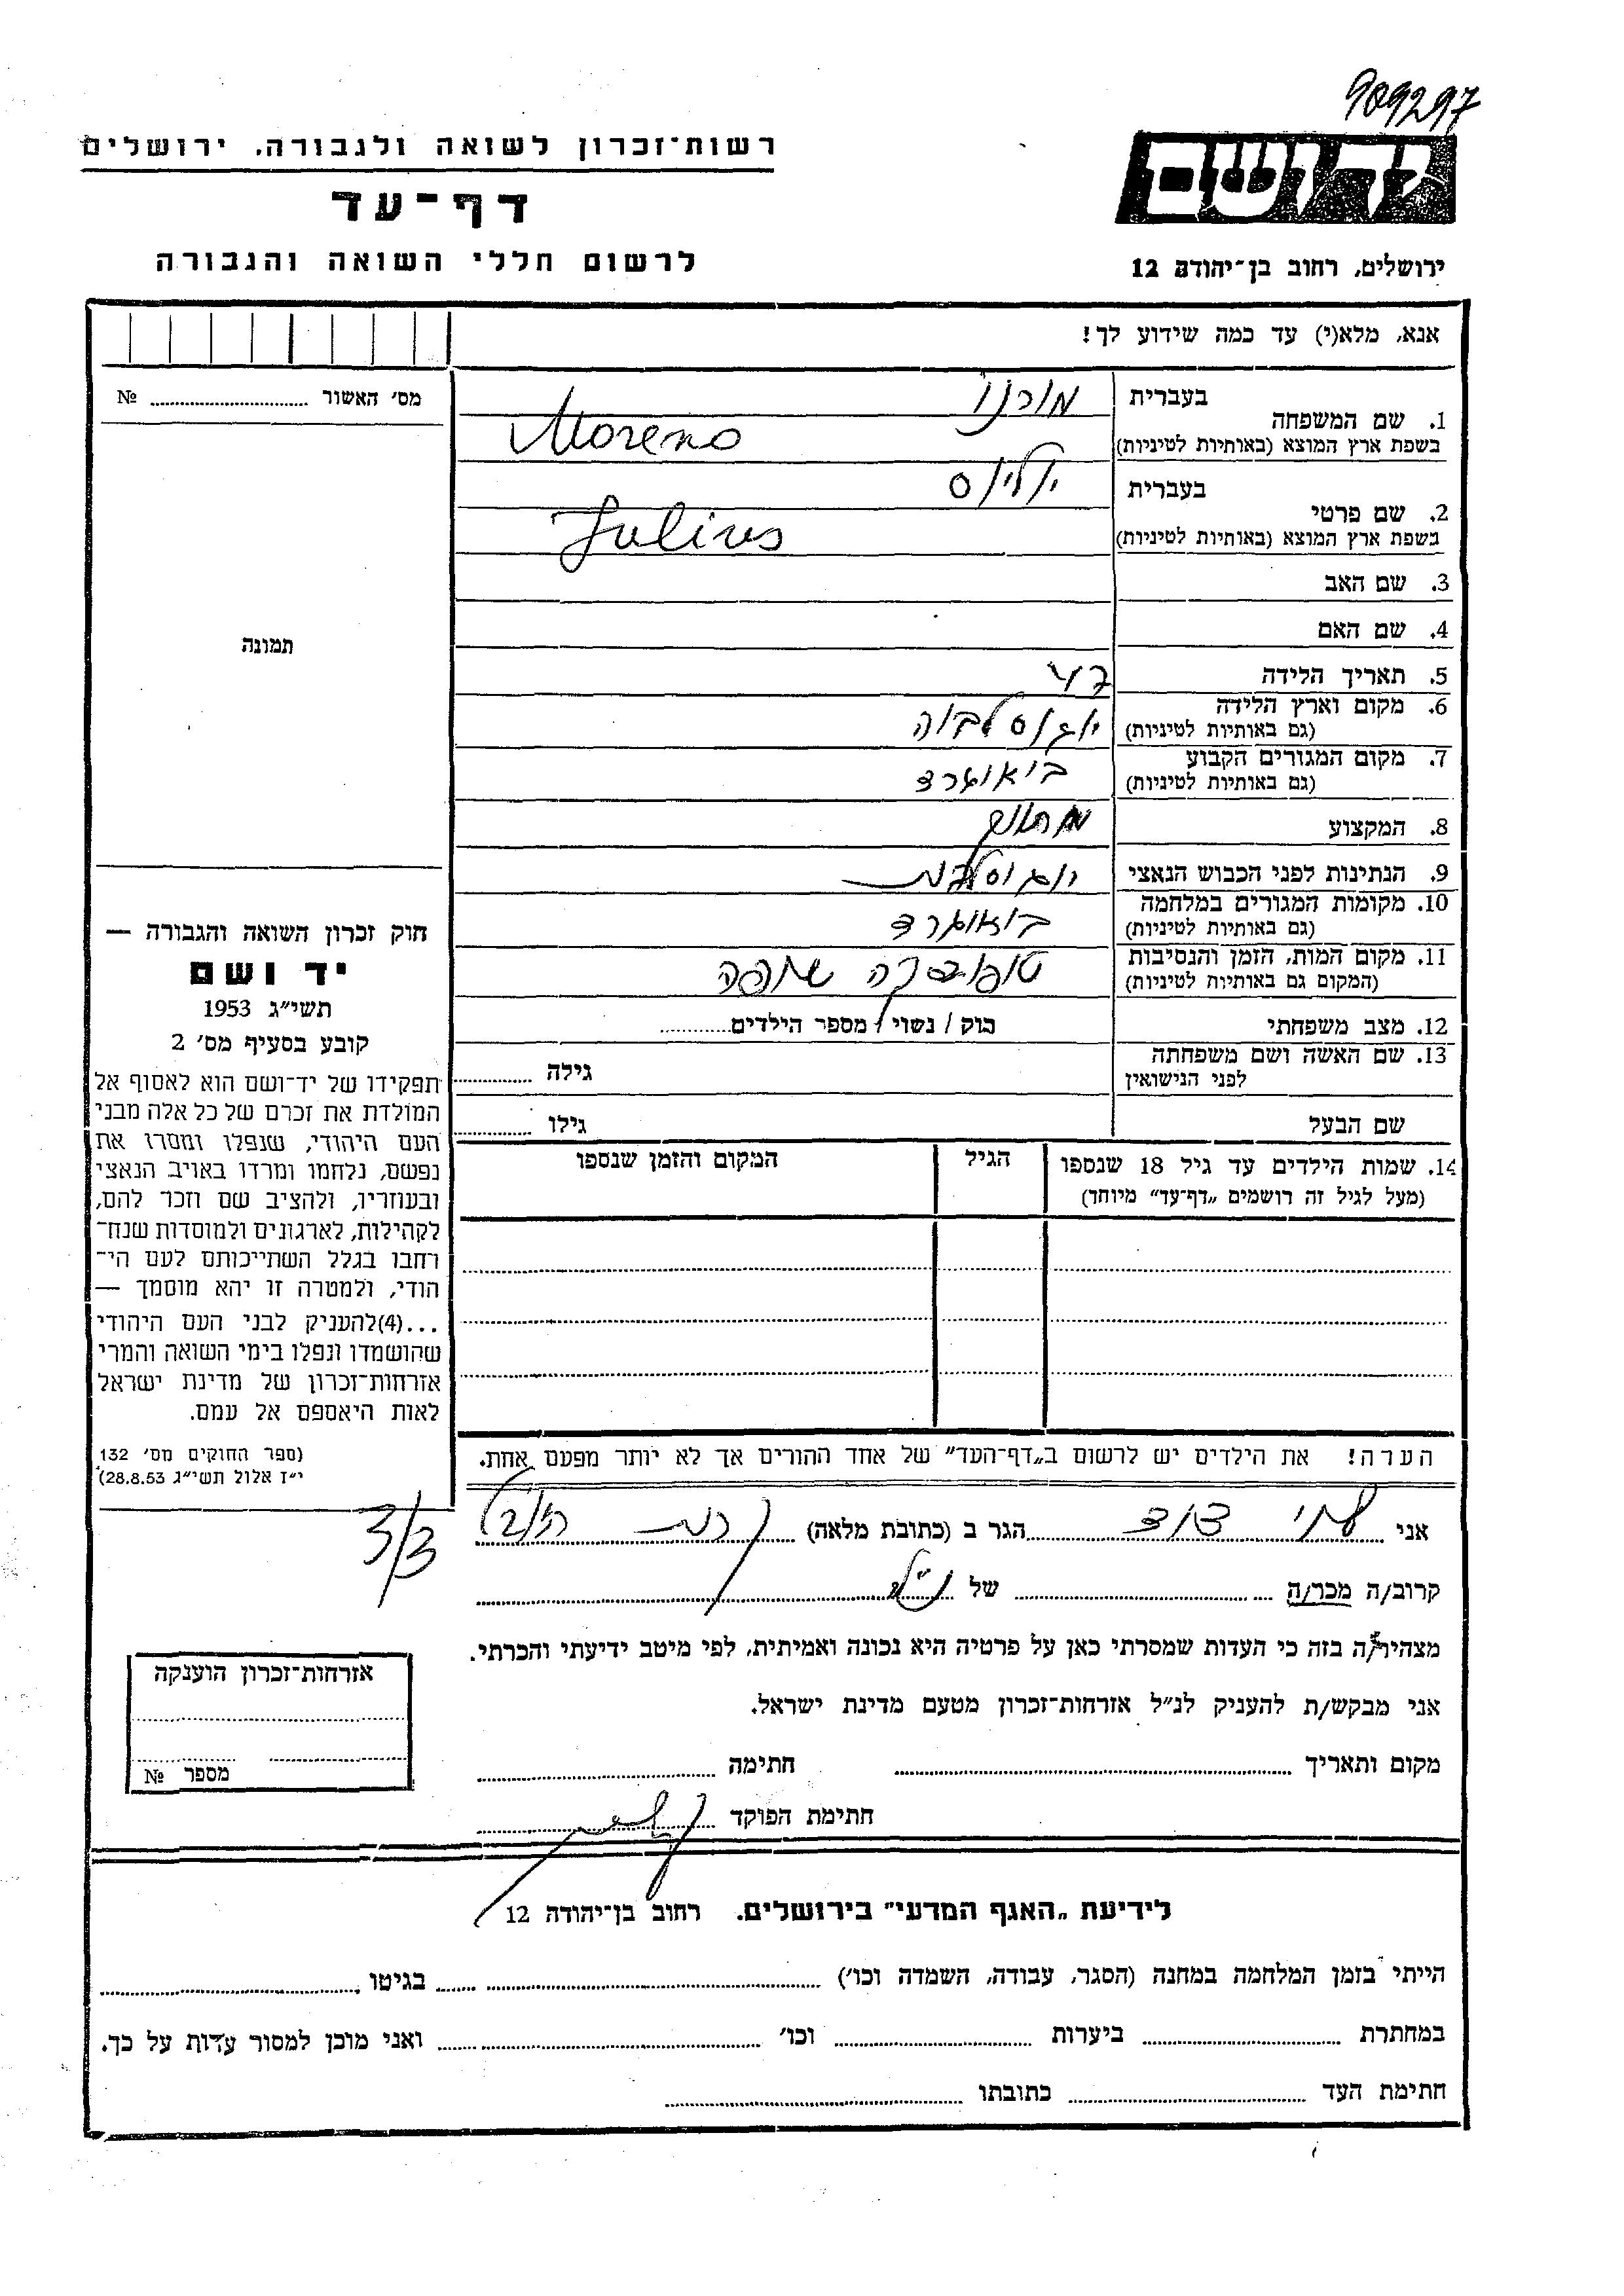 909297
רשות־זכרון לשואה ולגבורה, ירושלים
דף־עד
לרשום חללי השואה והגבורה
יד ושם
ירושלים, רחוב בן־יהודה 12
אנא, מלא(י) עד כמה שידוע לך!
מס׳ האשור № 
תמונה
1. שם המשפחה
בעברית מורנו
בשפת ארץ המוצא (באותיות לטיניות) Moreno
2. שם פרטי
בעברית יוליוס
בשפת ארץ המוצא (באותיות לטיניות) Julius
3. שם האב
4. שם האם
5. תאריך הלידה
6. מקום וארץ הלידה יוגוסלביה
(גם באותיות לטיניות)
7. מקום המגורים הקבוע
(גם באותיות לטיניות)
8. המקצוע
9. הנתינות לפני הכבוש הנאצי יוגוסלבית
10. מקומות המגורים במלחמה
(גם באותיות לטיניות)
11. מקום המות, הזמן והנסיבות
(המקום גם באותיות לטיניות)
12. מצב משפחתי רוק / נשוי / מספר הילדים
13. שם האשה ושם משפחתה גילה
לפני הנישואין
שם הבעל גילו
14. שמות הילדים עד גיל 18 שנספו הגיל המקום והזמן שנספו
(מעל לגיל זה רושמים „דף־עד” מיוחד)
הערה! את הילדים יש לרשום ב„דף־העד” של אחד ההורים אך לא יותר מפעם אחת.
חוק זכרון השואה והגבורה —
יד ושם
תשי״ג 1953
קובע בסעיף מס׳ 2
תפקידו של יד־ושם הוא לאסוף אל
המולדת את זכרם של כל אלה מבני
העם היהודי, שנפלו ומסרו את
נפשם, נלחמו ומרדו באויב הנאצי
ובעוזריו, ולהציב שם וזכר להם,
לקהילות, לארגונים ולמוסדות שנח־
רבו בגלל השתייכותם לעם הי־
הודי, ולמטרה זו יהא מוסמך —
...(4)להעניק לבני העם היהודי
שהושמדו ונפלו בימי השואה והמרי
אזרחות־זכרון של מדינת ישראל
לאות היאספם אל עמם.
(ספר החוקים מס׳ 132
י״ז אלול תשי״ג 28.8.53)
3/3
אני הגר ב (כתובת מלאה)
קרוב/ה מכר/ה של
מצהיר/ה בזה כי העדות שמסרתי כאן על פרטיה היא נכונה ואמיתית, לפי מיטב ידיעתי והכרתי.
אני מבקש/ת להעניק לנ״ל אזרחות־זכרון מטעם מדינת ישראל.
מקום ותאריך חתימה
חתימת הפוקד
אזרחות־זכרון הוענקה
מספר №
לידיעת „האגף המדעי” בירושלים. רחוב בן־יהודה 12
הייתי בזמן המלחמה במחנה (הסגר, עבודה, השמדה וכו׳) בגיטו
במחתרת ביערות וכו׳ ואני מוכן למסור עדות על כך.
חתימת העד כתובתו